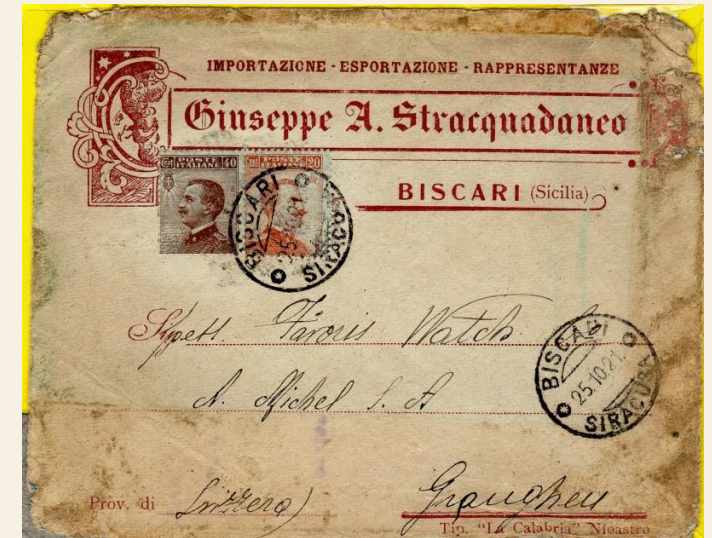 IMPORTAZIONE - ESPORTAZIONE - RAPPRESENTANZE
Giuseppe A. Stracquadaneo
BISCARI (Sicilia)
POSTE ITALIANE 40
20
BISCARI
25.10.21
SIRACU
Spett. Favoris Watch
A. Michel S. A
BISCARI
25.10.21.
SIRACU
Prov. di Svizzera) Granghen
Tip. "La Calabria" Nicastro